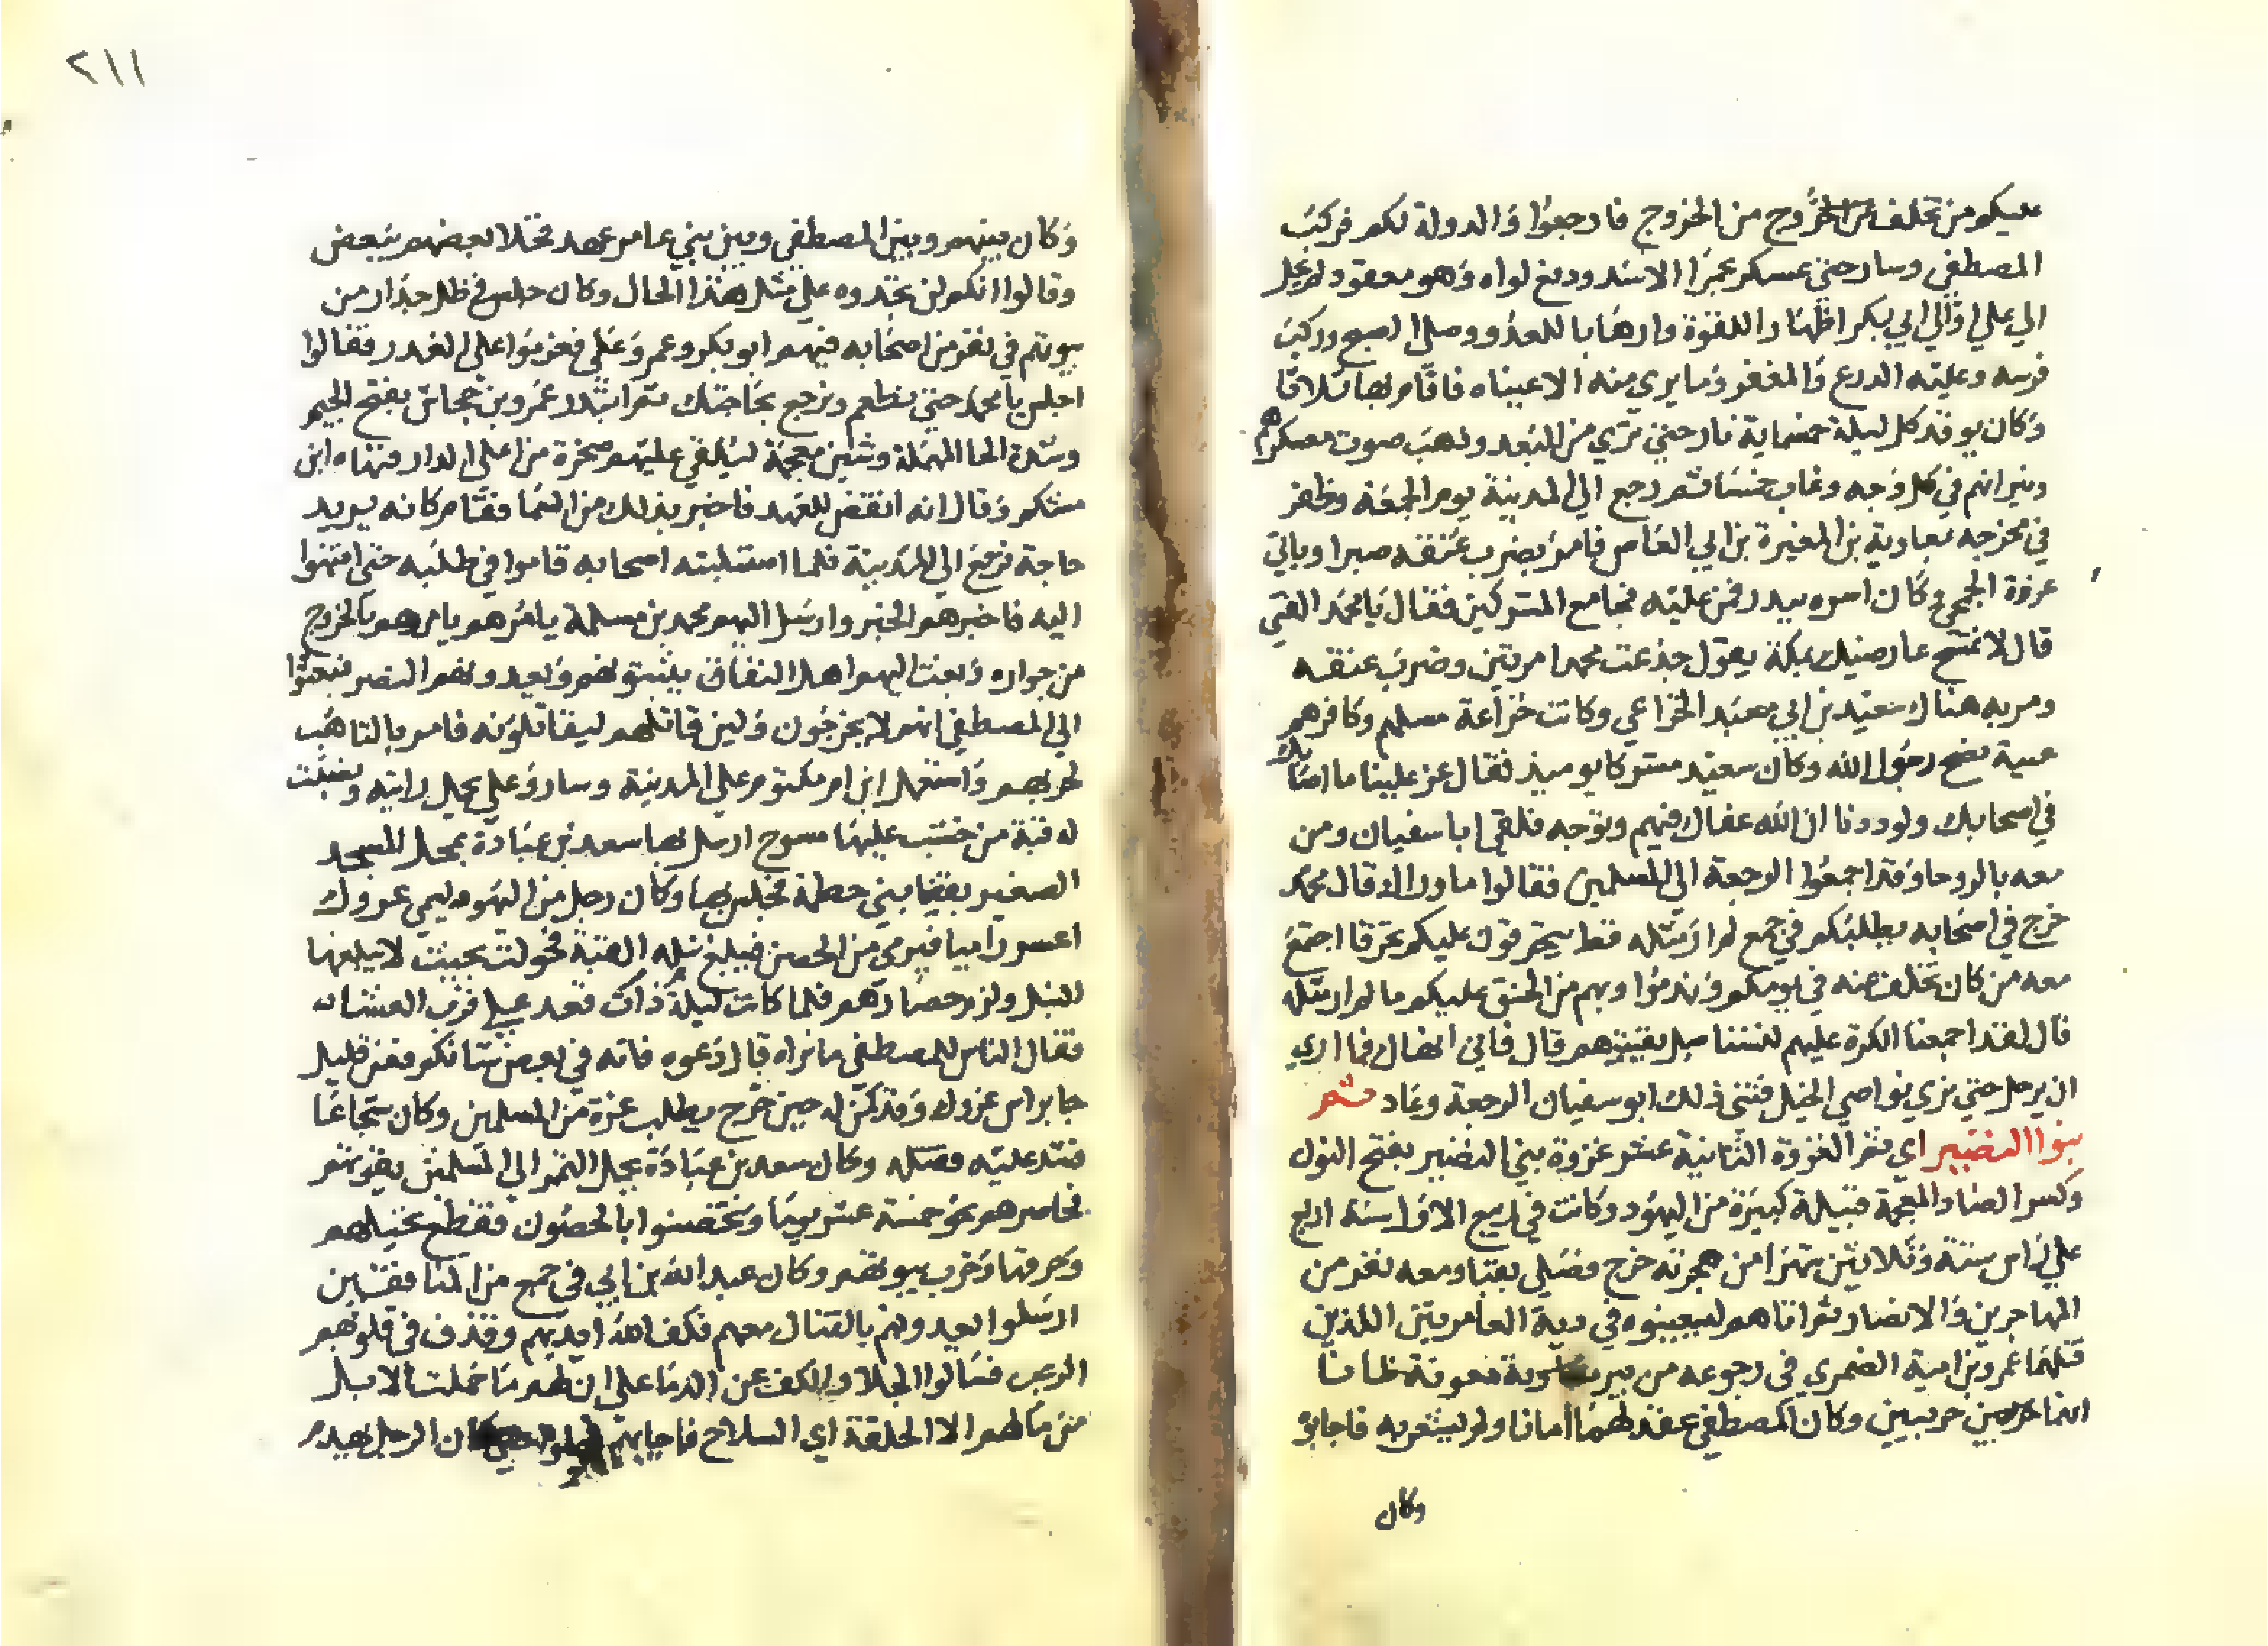 عليكم من تخلف من الخروج من الخروج فارجعوا والدولة لكم فركب
المصطفى وسار حتى عسكر بحمرا الاسد ودفع لواه وهو معقود لم يحل
الى علي او الى ابي بكر اظهارا للقوة وارهابا للعدو وصلى الصبح وركب
فرسه وعليه الدرع والمغفر وما يرى منه الا عيناه فاقام بها ثلاثا
وكان يوقد كل ليلة خمسماية نار حتى ترى من البعد وذهب صوت معسكرهم
ونيرانهم في كل وجه وغاب خمسا ثم رجع الى المدينة يوم الجمعة وظفر
في مخرجه بمعاوية بن المغيرة بن ابي العاص فامر بضرب عنقه صبرا وبابي
عزة الجمحي وكان اسره ببدر فمن عليه فجا مع المشركين فقال يا محمد اقلني
قال لا تمسح عارضيك بمكة يقول خدعت محمدا مرتين وضرب عنقه
ومر به هناك معبد بن ابي معبد الخزاعي وكانت خزاعة مسلمهم وكافرهم
عيبة نصح رسول الله وكان معبد مشركا يوميذ فقال عز علينا ما اصابك
في اصحابك ولوددنا ان الله عفاك فيهم وتوجه فلقي ابا سفيان ومن
معه بالروحا وقد اجمعوا الرجعة الى المسلمين فقالوا ما وراك قال محمد
خرج في اصحابه يطلبكم في جمع لم ار مثله قط يتحرقون عليكم تحرقا اجتمع
معه من كان تخلف عنه في يومكم وندموا وبهم من الحنق عليكم ما لم ار مثله
قال لقد اجمعنا الكرة عليهم لنستاصل بقيتهم قال فاني انهاك فما ارى
ان يرحل حتى نرى نواصي الخيل فثنى ذلك ابو سفيان الرجعة وعاد ثم
بنوا النضير اي ثم الغزوة الثانية عشر غزوة بني النضير بفتح النون
وكسر الضاد المعجمة قبيلة كبيرة من اليهود وكانت في ربيع الاول سنة اربع
على راس ستة وثلاثين شهرا من هجرته خرج فصلى بقبا ومعه نفر من
المهاجرين والانصار ثم اتاهم ليعينوه في دية العامريين اللذين
قتلهما عمرو بن امية الضمري في رجوعه من بير معونة ظانا
انهما حربيين وكان المصطفى عقد لهما امانا ولم يشعر به فاجابو
وكان
٢١١
وكان بينهم وبين المصطفى وبين بني عامر عهد فخلا بعضهم ببعض
وقالوا انكم لن تجدوه على مثل هذا الحال وكان جلس في ظل جدار من
بيوتهم في نفر من اصحابه فيهم ابو بكر وعمر وعلي فعزموا على الغدر فقالوا
اجلس يا محمد حتى تطعم وترجع بحاجتك ثم ابتدر عمرو بن جحاش بفتح الجيم
وشدة الحا المهملة وشين معجمة ليلقي عليهم صخرة من اعلى الدار فنهاه ابن
مشكم وقال انه انقض للعهد فاخبر بذلك من السما فقام كانه يريد
حاجة فرجع الى المدينة فلما استلبثه اصحابه قاموا في طلبه حتى انتهوا
اليه فاخبرهم الخبر وارسل اليهم محمد بن مسلمة يامرهم يامرهم بالخروج
من جواره وبعث اليهم اهل النفاق يثبتوهم ويعدوهم النصر فبعثوا
الى المصطفى انهم لا يخرجون ولين قاتلهم ليقاتلونه فامر بالتاهب
لحربهم واستعمل ابن ام مكتوم على المدينة وسار وعلي يحمل رايته وضربت
له قبة من خشب عليها مسوح ارسل بها سعد بن عبادة بمحل المسجد
الصغير بفنا بني خطمة فجلس بها وكان رجل من اليهود يسمى عزوك
اعسر راميا فيرمي من الحصن فيبلغ نبله القبة فحولت بحيث لا يبلغها
النبل ولزم حصارهم فلما كانت ليلة ذات فقد علي قرب العشا
فقال الناس للمصطفى ما نراه قال دعوه فانه في بعض شانكم فعن قليل
جا براس عزوك وقد كمن له حين خرج يطلب غرة من المسلمين وكان شجاعا
فشد عليه فقتله وكان سعد بن عبادة يحمل التمر الى المسلمين
فحاصرهم نحو خمسة عشر يوما وتحصنوا بالحصون فقطع نخيلهم
وحرقها وخرب بيوتهم وكان عبد الله بن ابي في جمع من المنافقين
ارسلوا يعدونهم بالقتال معهم فكف الله ايديهم وقذف في قلوبهم
الرعب فسالوا الجلا والكف عن الدما على ان لهم ما حملت الابل
من مالهم الا الحلقة اي السلاح فاجابهم كان الرجل يهدم